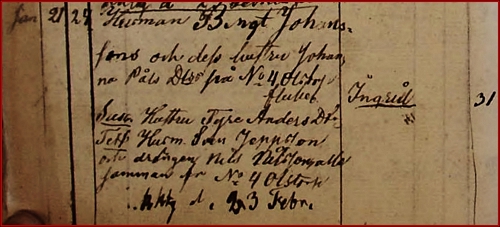 Jan 21 27 Husman Bengt Johans-
sons och dess hustru Johan-
na Påls Dtr från No 4 Olstorp
Ingrid 31
Susc. Hustru Tyre Anders Dtr
Test. Husm. Sven Jeppsson
och drängen Nils Nilsson alle
samman fr No 4 Olstorp
d. 23 Febr.